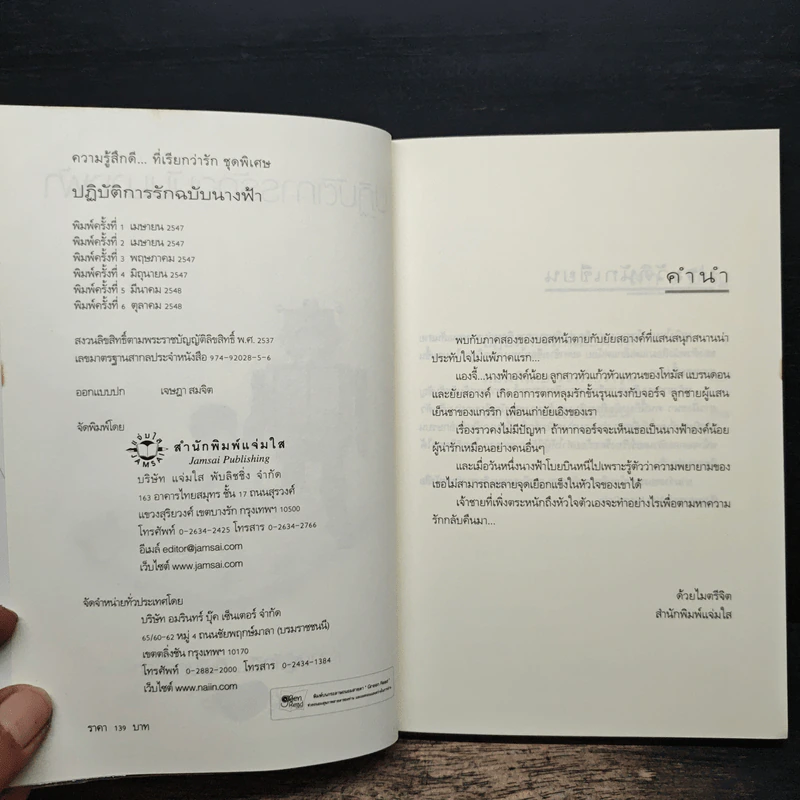 ความรู้สึกดี... ที่เรียกว่ารัก ชุดพิเศษ
ปฏิบัติการรักฉบับนางฟ้า
พิมพ์ครั้งที่ 1 เมษายน 2547
พิมพ์ครั้งที่ 2 เมษายน 2547
พิมพ์ครั้งที่ 3 พฤษภาคม 2547
พิมพ์ครั้งที่ 4 มิถุนายน 2547
พิมพ์ครั้งที่ 5 มีนาคม 2548
พิมพ์ครั้งที่ 6 ตุลาคม 2548
สงวนลิขสิทธิ์ตามพระราชบัญญัติลิขสิทธิ์ พ.ศ. 2537
เลขมาตรฐานสากลประจำหนังสือ 974-92028-5-6
ออกแบบปก เจษฎา สมจิต
จัดพิมพ์โดย
แจ่มใส
JAMSAI
สำนักพิมพ์แจ่มใส
Jamsai Publishing
บริษัท แจ่มใส พับลิชชิ่ง จำกัด
163 อาคารไทยสมุทร ชั้น 17 ถนนสุรวงศ์
แขวงสุริยวงศ์ เขตบางรัก กรุงเทพฯ 10500
โทรศัพท์ 0-2634-2425 โทรสาร 0-2634-2766
อีเมล์ editor@jamsai.com
เว็บไซต์ www.jamsai.com
จัดจำหน่ายทั่วประเทศโดย
บริษัท อมรินทร์ บุ๊ค เซ็นเตอร์ จำกัด
65/60-62 หมู่ 4 ถนนชัยพฤกษ์มาลา (บรมราชชนนี)
เขตตลิ่งชัน กรุงเทพฯ 10170
โทรศัพท์ 0-2882-2000 โทรสาร 0-2434-1384
เว็บไซต์ www.naiin.com
Green Read
ราคา 139 บาท
คำนำ
พบกับภาคสองของบอสหน้าตายกับยัยสอางค์ที่แสนสนุกสนานน่า
ประทับใจไม่แพ้ภาคแรก...
แองจี้...นางฟ้าองค์น้อย ลูกสาวหัวแก้วหัวแหวนของโทมัส แบรนดอน
และยัยสอางค์ เกิดอาการตกหลุมรักขั้นรุนแรงกับจอร์จ ลูกชายผู้แสน
เย็นชาของแกรริก เพื่อนเก่ายัยเอิงของเรา
เรื่องราวคงไม่มีปัญหา ถ้าหากจอร์จจะเห็นเธอเป็นนางฟ้าองค์น้อย
ผู้น่ารักเหมือนอย่างคนอื่นๆ
และเมื่อวันหนึ่งนางฟ้าโบยบินหนีไปเพราะรู้ตัวว่าความพยายามของ
เธอไม่สามารถละลายจุดเยือกแข็งในหัวใจของเขาได้
เจ้าชายที่เพิ่งตระหนักถึงหัวใจตัวเองจะทำอย่างไรเพื่อตามหาความ
รักกลับคืนมา...
ด้วยไมตรีจิต
สำนักพิมพ์แจ่มใส